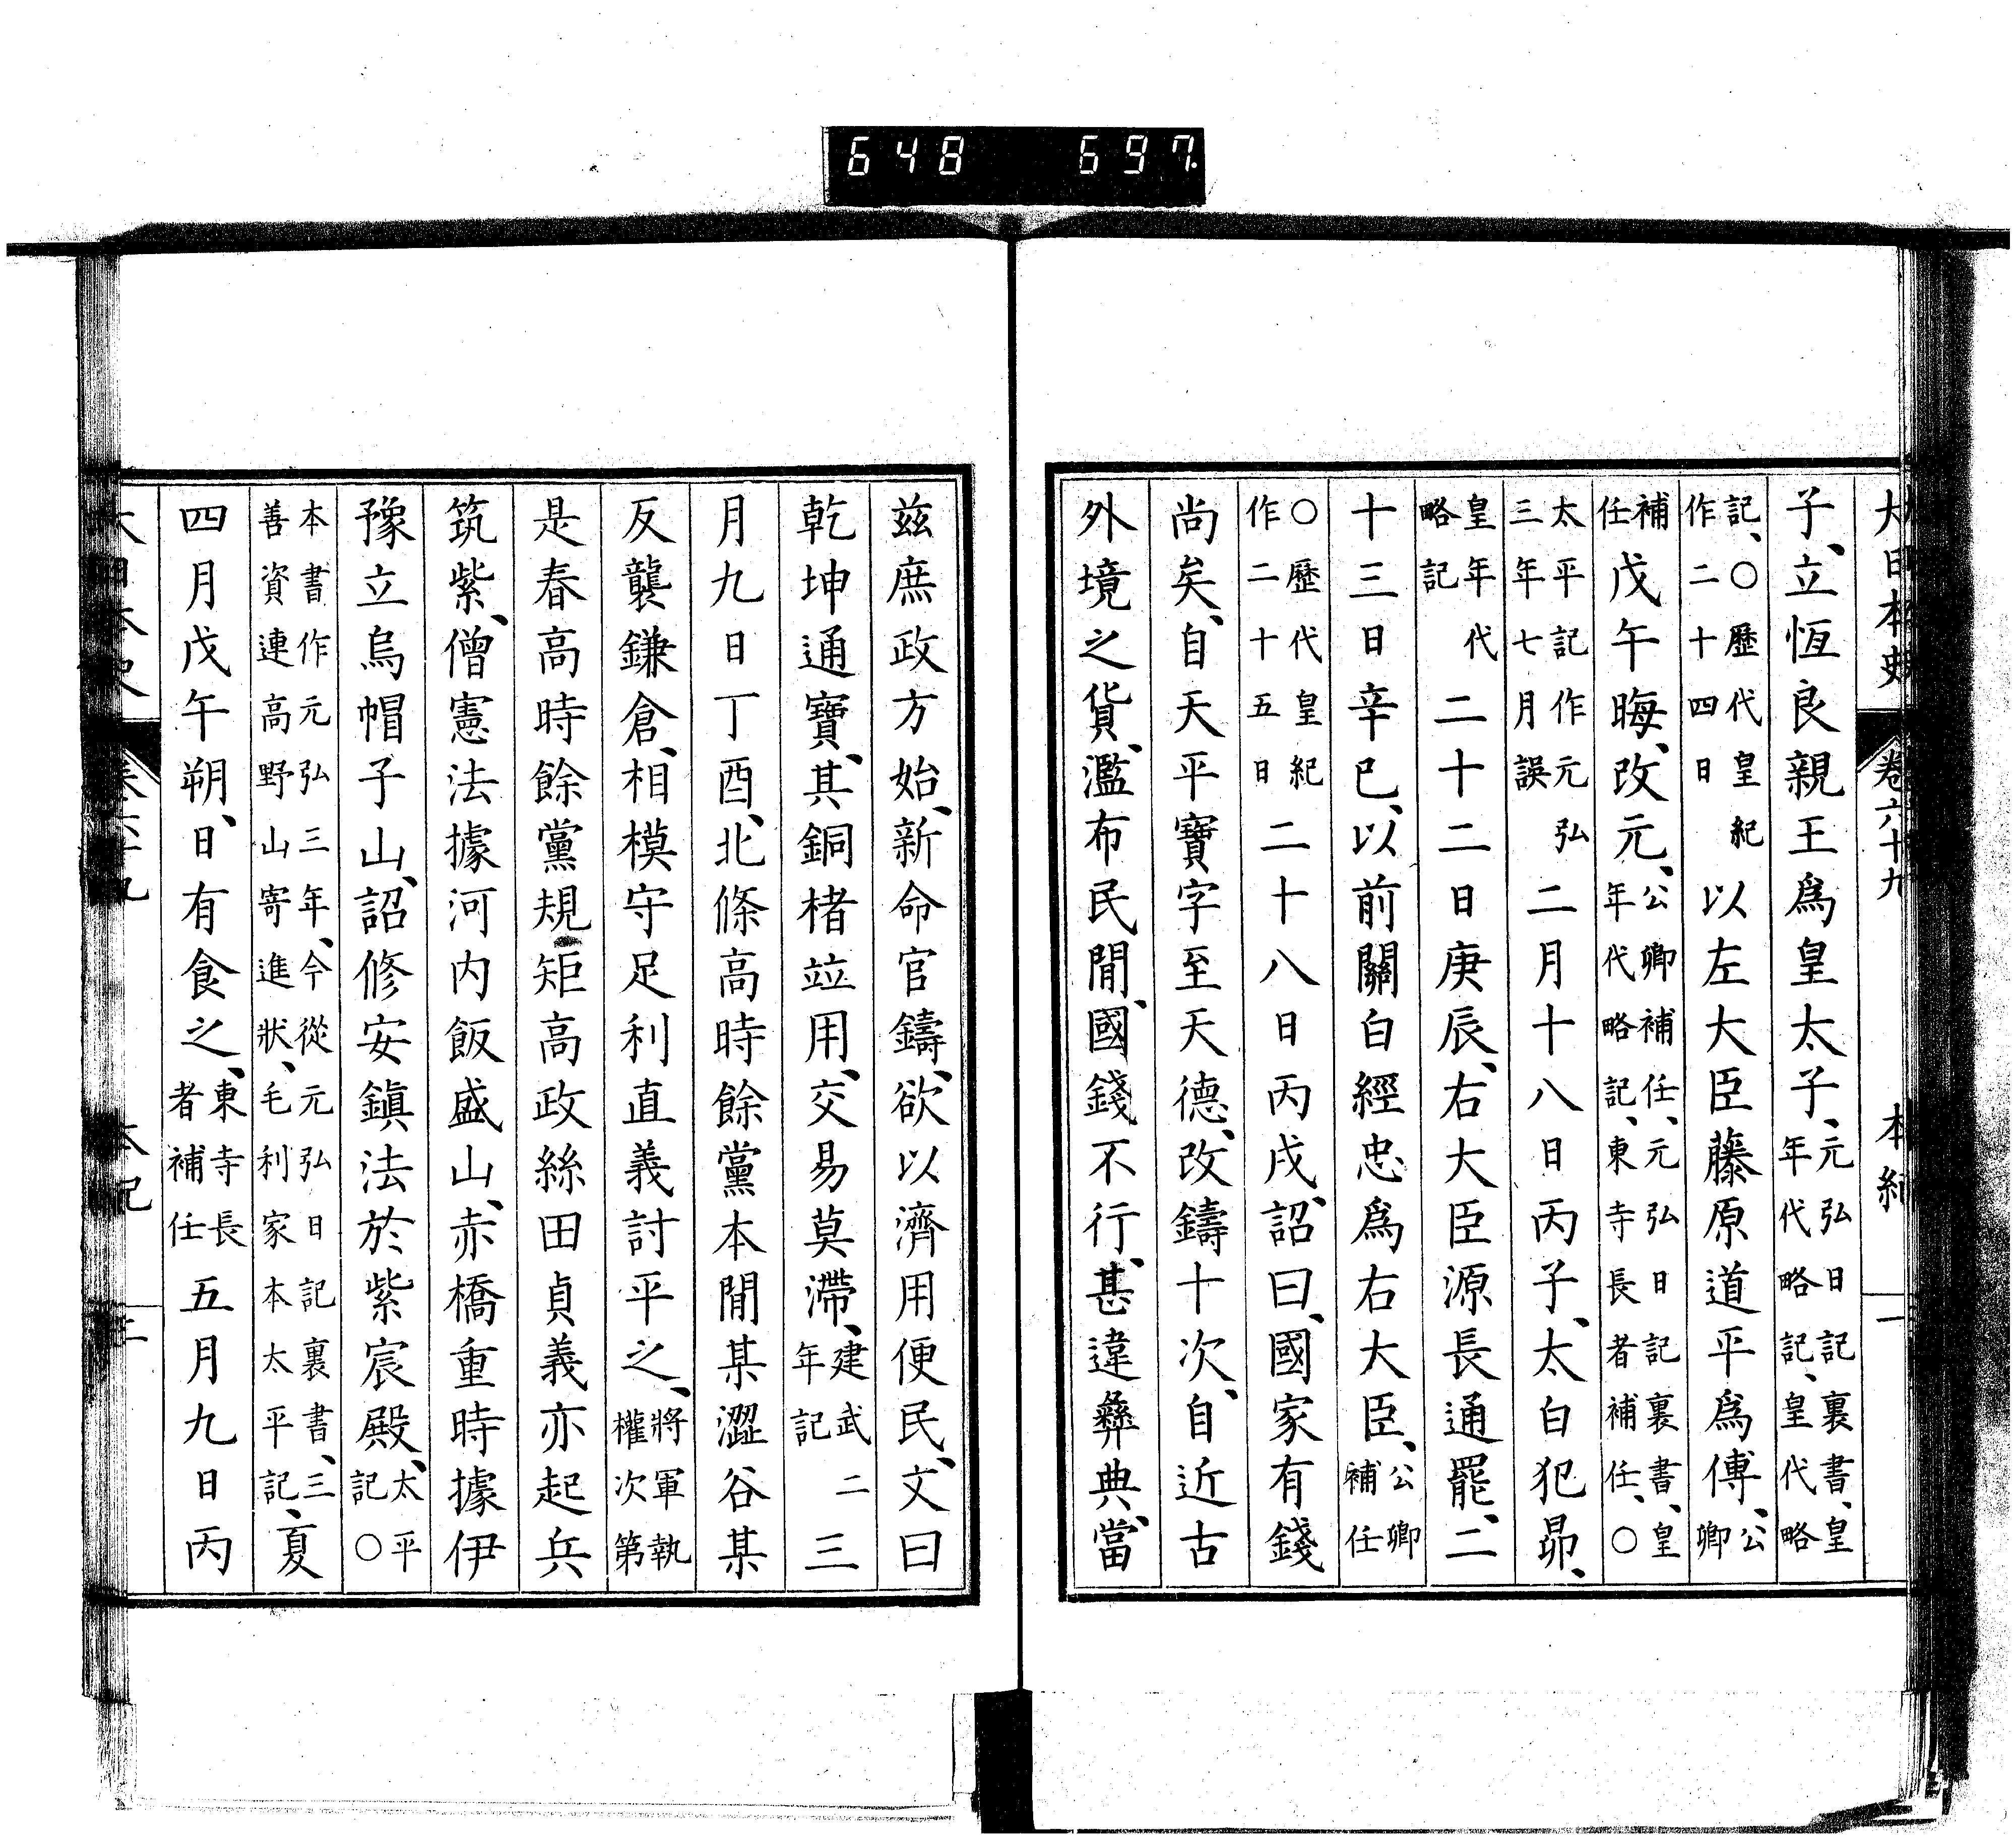 648 697.
大日本史 卷六十九 本紀 一
子、立恆良親王爲皇太子、元弘日記裏書、皇年代略記、皇代略
記、○歷代皇紀作二十四日以左大臣藤原道平爲傅、公卿
補任戊午晦、改元、公卿補任、元弘日記裏書、皇年代略記、東寺長者補任、○
太平記作元弘三年七月誤二月十八日丙子、太白犯昴、
皇年代略記二十二日庚辰、右大臣源長通罷、二
十三日辛巳、以前關白經忠爲右大臣、公卿補任
○歷代皇紀作二十五日二十八日丙戌、詔曰、國家有錢
尚矣、自天平寶字至天德、改鑄十次、自近古
外境之貨、濫布民閒、國錢不行、甚違彝典、當
茲庶政方始、新命官鑄、欲以濟用便民、文曰
乾坤通寶、其銅楮竝用、交易莫滯、建武年記二三
月九日丁酉、北條高時餘黨本閒某澀谷某
反襲鎌倉、相模守足利直義討平之、將軍執權次第
是春高時餘黨規矩高政絲田貞義亦起兵
筑紫、僧憲法據河內飯盛山、赤橋重時據伊
豫立烏帽子山、詔修安鎮法於紫宸殿、太平記○
本書作元弘三年、今從元弘日記裏書、三善資連高野山寄進狀、毛利家本太平記、夏
四月戊午朔、日有食之、東寺長者補任五月九日丙
大日本史 卷六十九 本紀 二